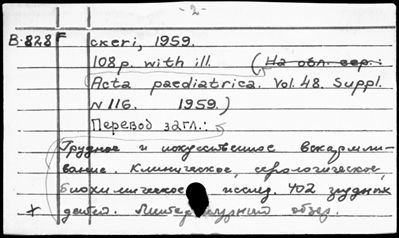 - 2 -
B-828 F ckeri, 1959.
108 p. with ill. (На обл. сер.:
Acta paediatrica. Vol. 48. Suppl.
N 116. 1959.)
Перевод загл.:
Грудное и искусственное вскармли-
вание. Клиническое, серологическое,
биохимическое исслед. 402 грудных
+ детей. Литературный обзор.